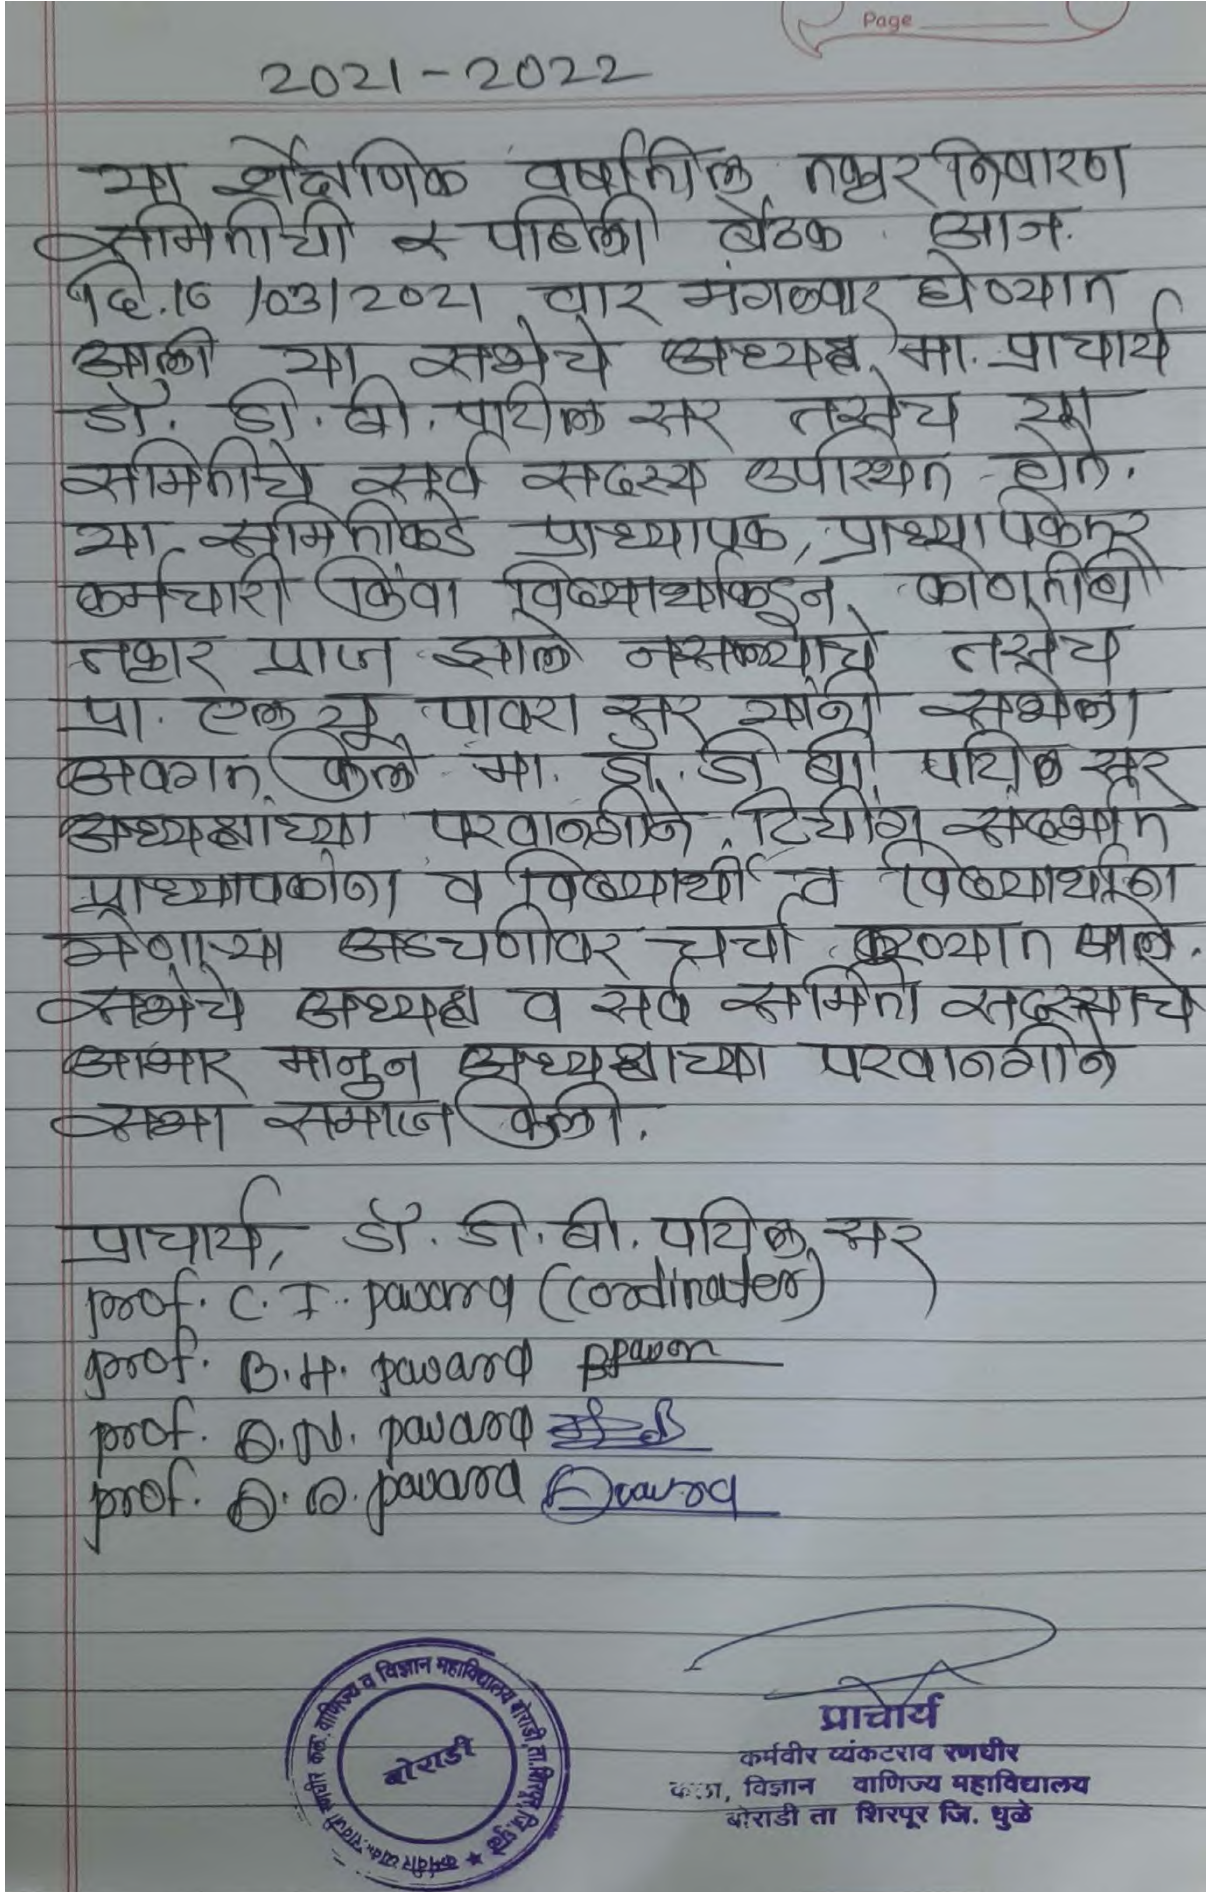 Page
2021-2022
या शैक्षणिक वर्षातील तक्रार निवारण
समितीची पहिली बैठक आज
दि.16/03/2021 वार मंगळवार घेण्यात
आली या सभेचे अध्यक्ष मा. प्राचार्य
डॉ. डी. बी. पाटील सर तसेच या
समितीचे सर्व सदस्य उपस्थित होते.
या समितीकडे प्राध्यापक, प्राध्यापकेतर
कर्मचारी किंवा विद्यार्थ्याकडून कोणतीही
तक्रार प्राप्त झाले नसल्याचे तसेच
प्रा. एल यू पावरा सर यांनी सभेला
अवगत केले मा. डॉ. डी बी पाटील सर
अध्यक्षाच्या परवानगीने टिचींग संदर्भात
प्राध्यापकांना व विद्यार्थी व विद्यार्थींना
येणाऱ्या अडचणीवर चर्चा करण्यात आले.
सभेचे अध्यक्ष व सर्व समिती सदस्याचे
आभार मानून अध्यक्षाच्या परवानगीने
सभा समाप्त केली.
प्राचार्य, डॉ. डी. बी. पाटील सर
prof. C. I. pawara (Cordinater)
prof. B.H. pawara
prof. D.N. pawara
prof. D. D. pawara
कर्मवीर व्यंक. रावजी रणधीर कला, वाणिज्य व विज्ञान महाविद्यालय बोराडी, ता. शिरपूर, जि. धुळे
बोराडी
प्राचार्य
कर्मवीर व्यंकटराव रणधीर
कला, विज्ञान वाणिज्य महाविद्यालय
बोराडी ता शिरपूर जि. धुळे